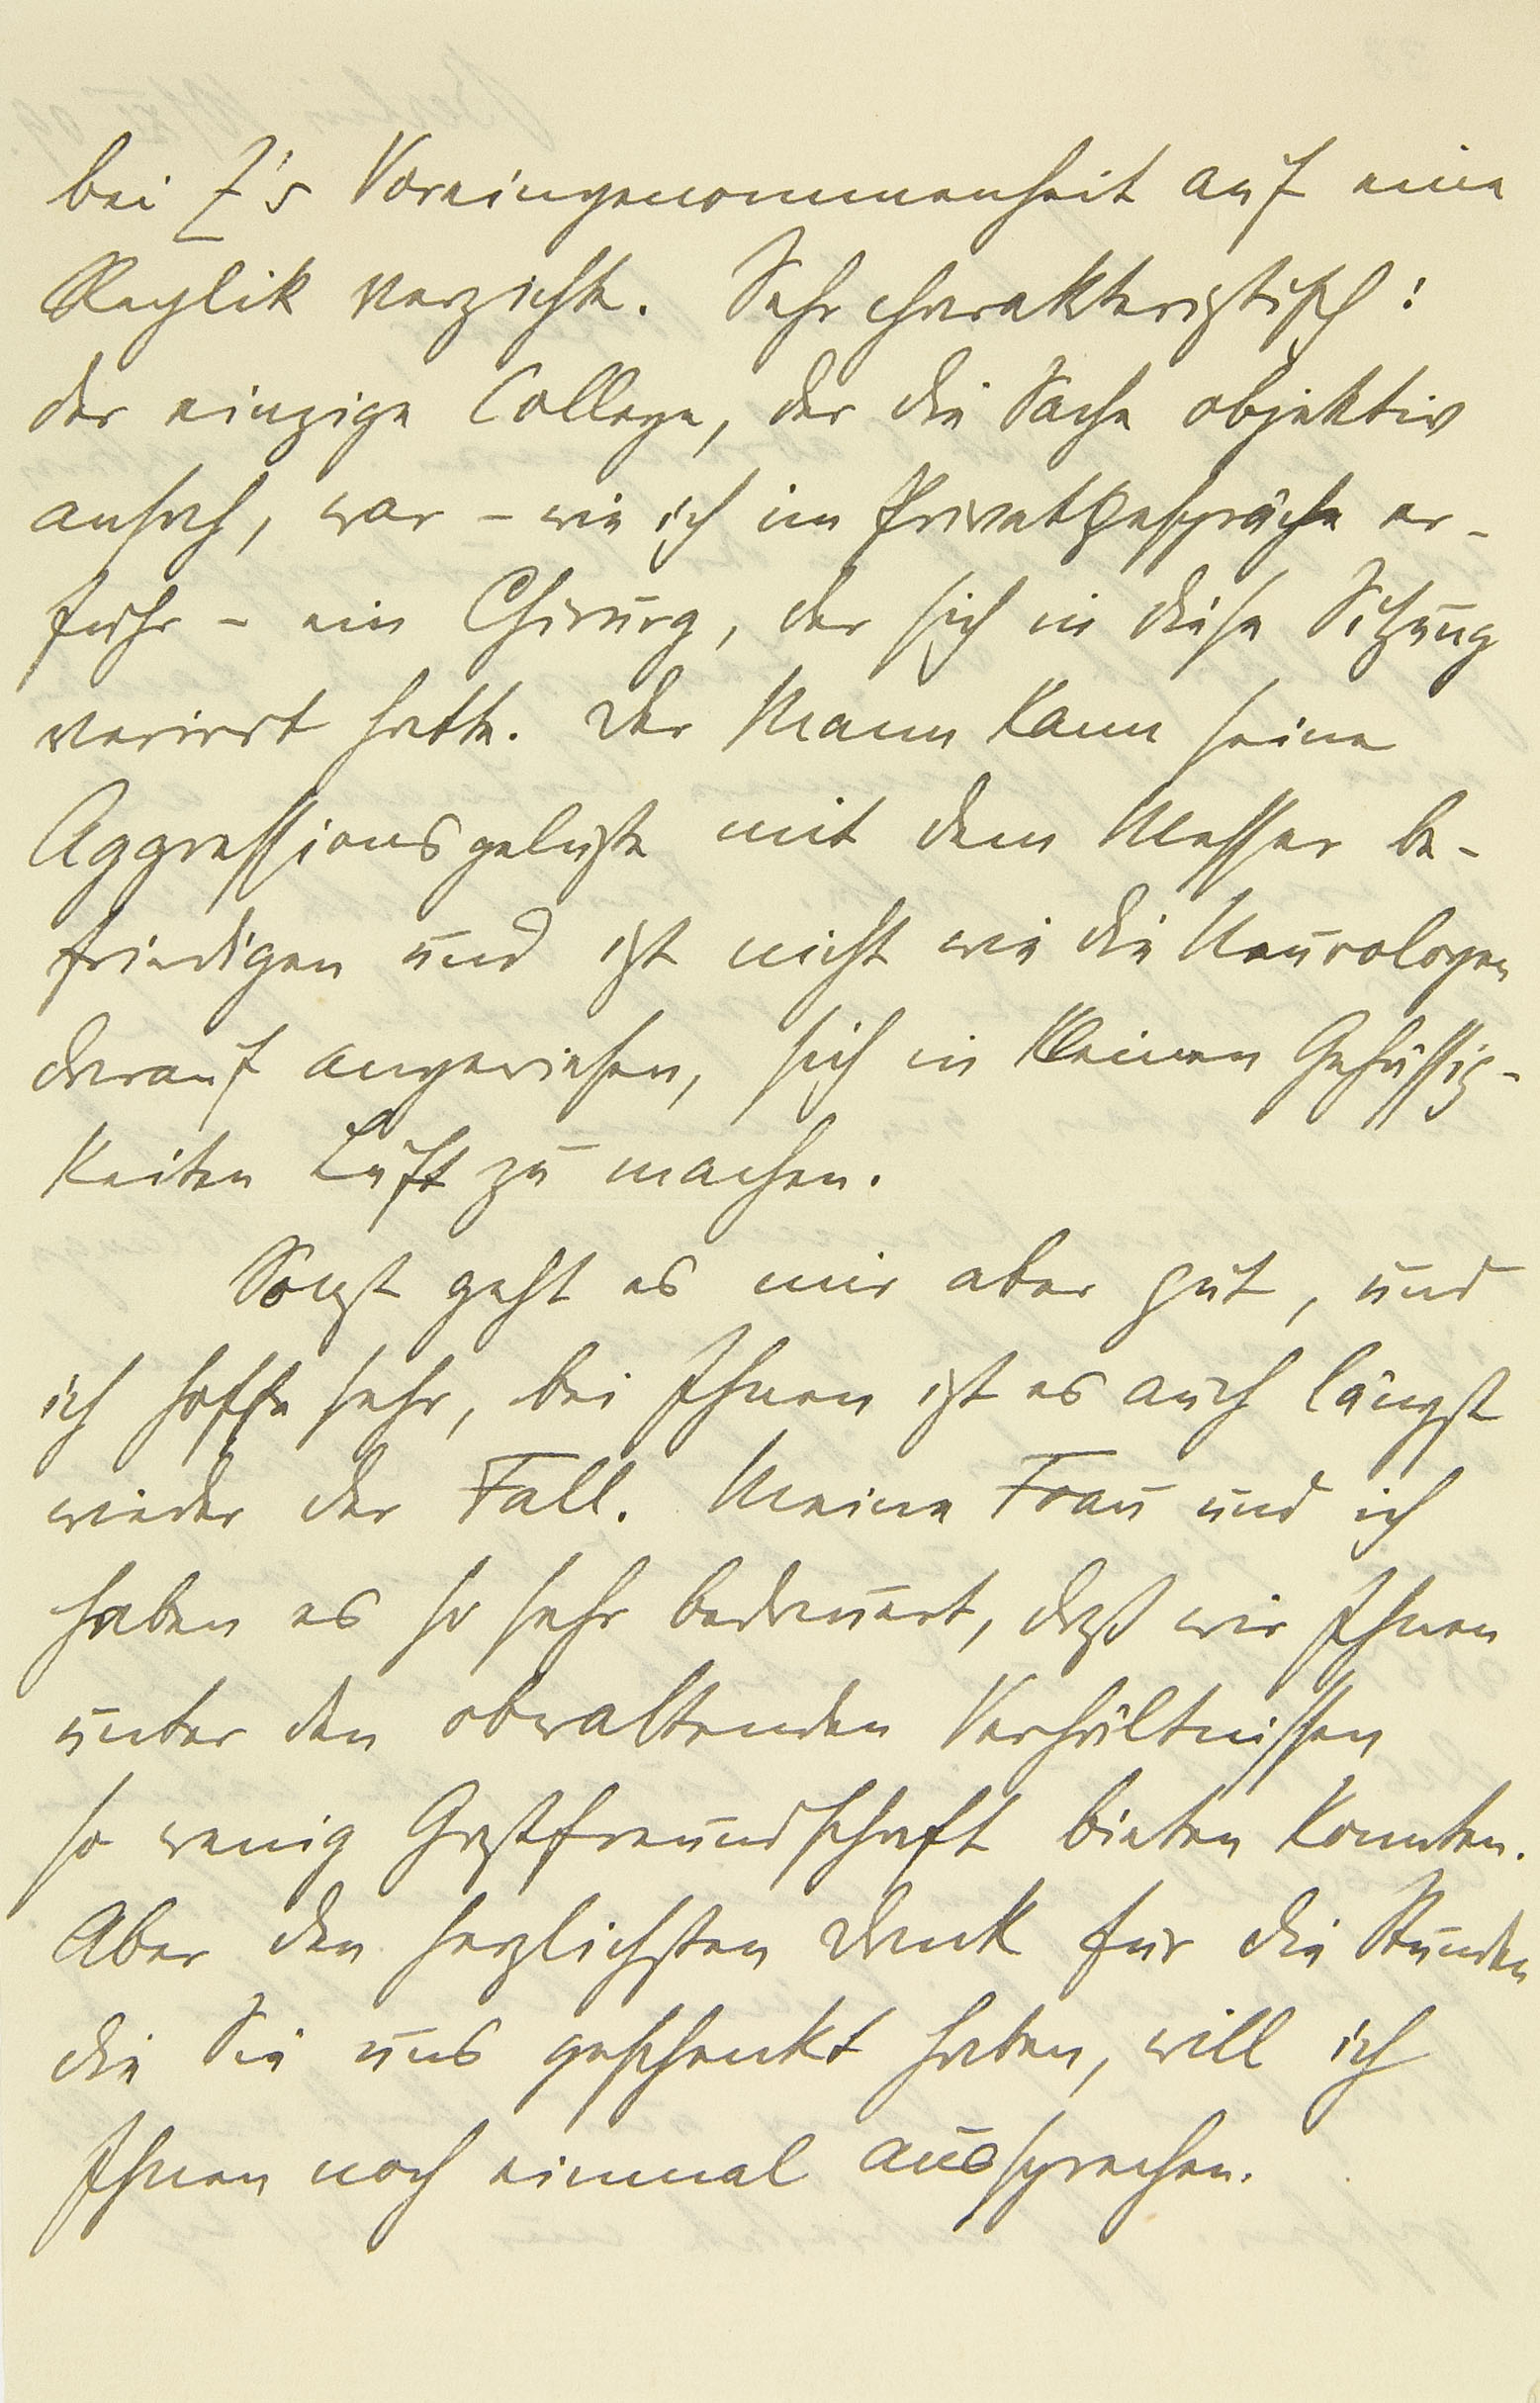 bei Z's Voreingenommenheit auf eine
Replik verzichte. Sehr charakteristisch:
der einzige College, der die Sache objektiv
ansah, war – wie ich im Privatgespräche er-
fuhr – ein Chirurg, der sich in diese Sitzung
verirrt hatte. Der Mann kann seine
Aggressionsgelüste mit dem Messer be-
friedigen und ist nicht wie die Neurologen
darauf angewiesen, sich in kleinen Gehässig-
keiten Luft zu machen.
Sonst geht es mir aber gut, und
ich hoffe sehr, bei Ihnen ist es auch längst
wieder der Fall. Meine Frau und ich
haben es so sehr bedauert, daß wir Ihnen
unter den obwaltenden Verhältnissen
so wenig Gastfreundschaft bieten konnten.
Aber den herzlichsten Dank für die Stunden
die Sie uns geschenkt haben, will ich
Ihnen noch einmal aussprechen.